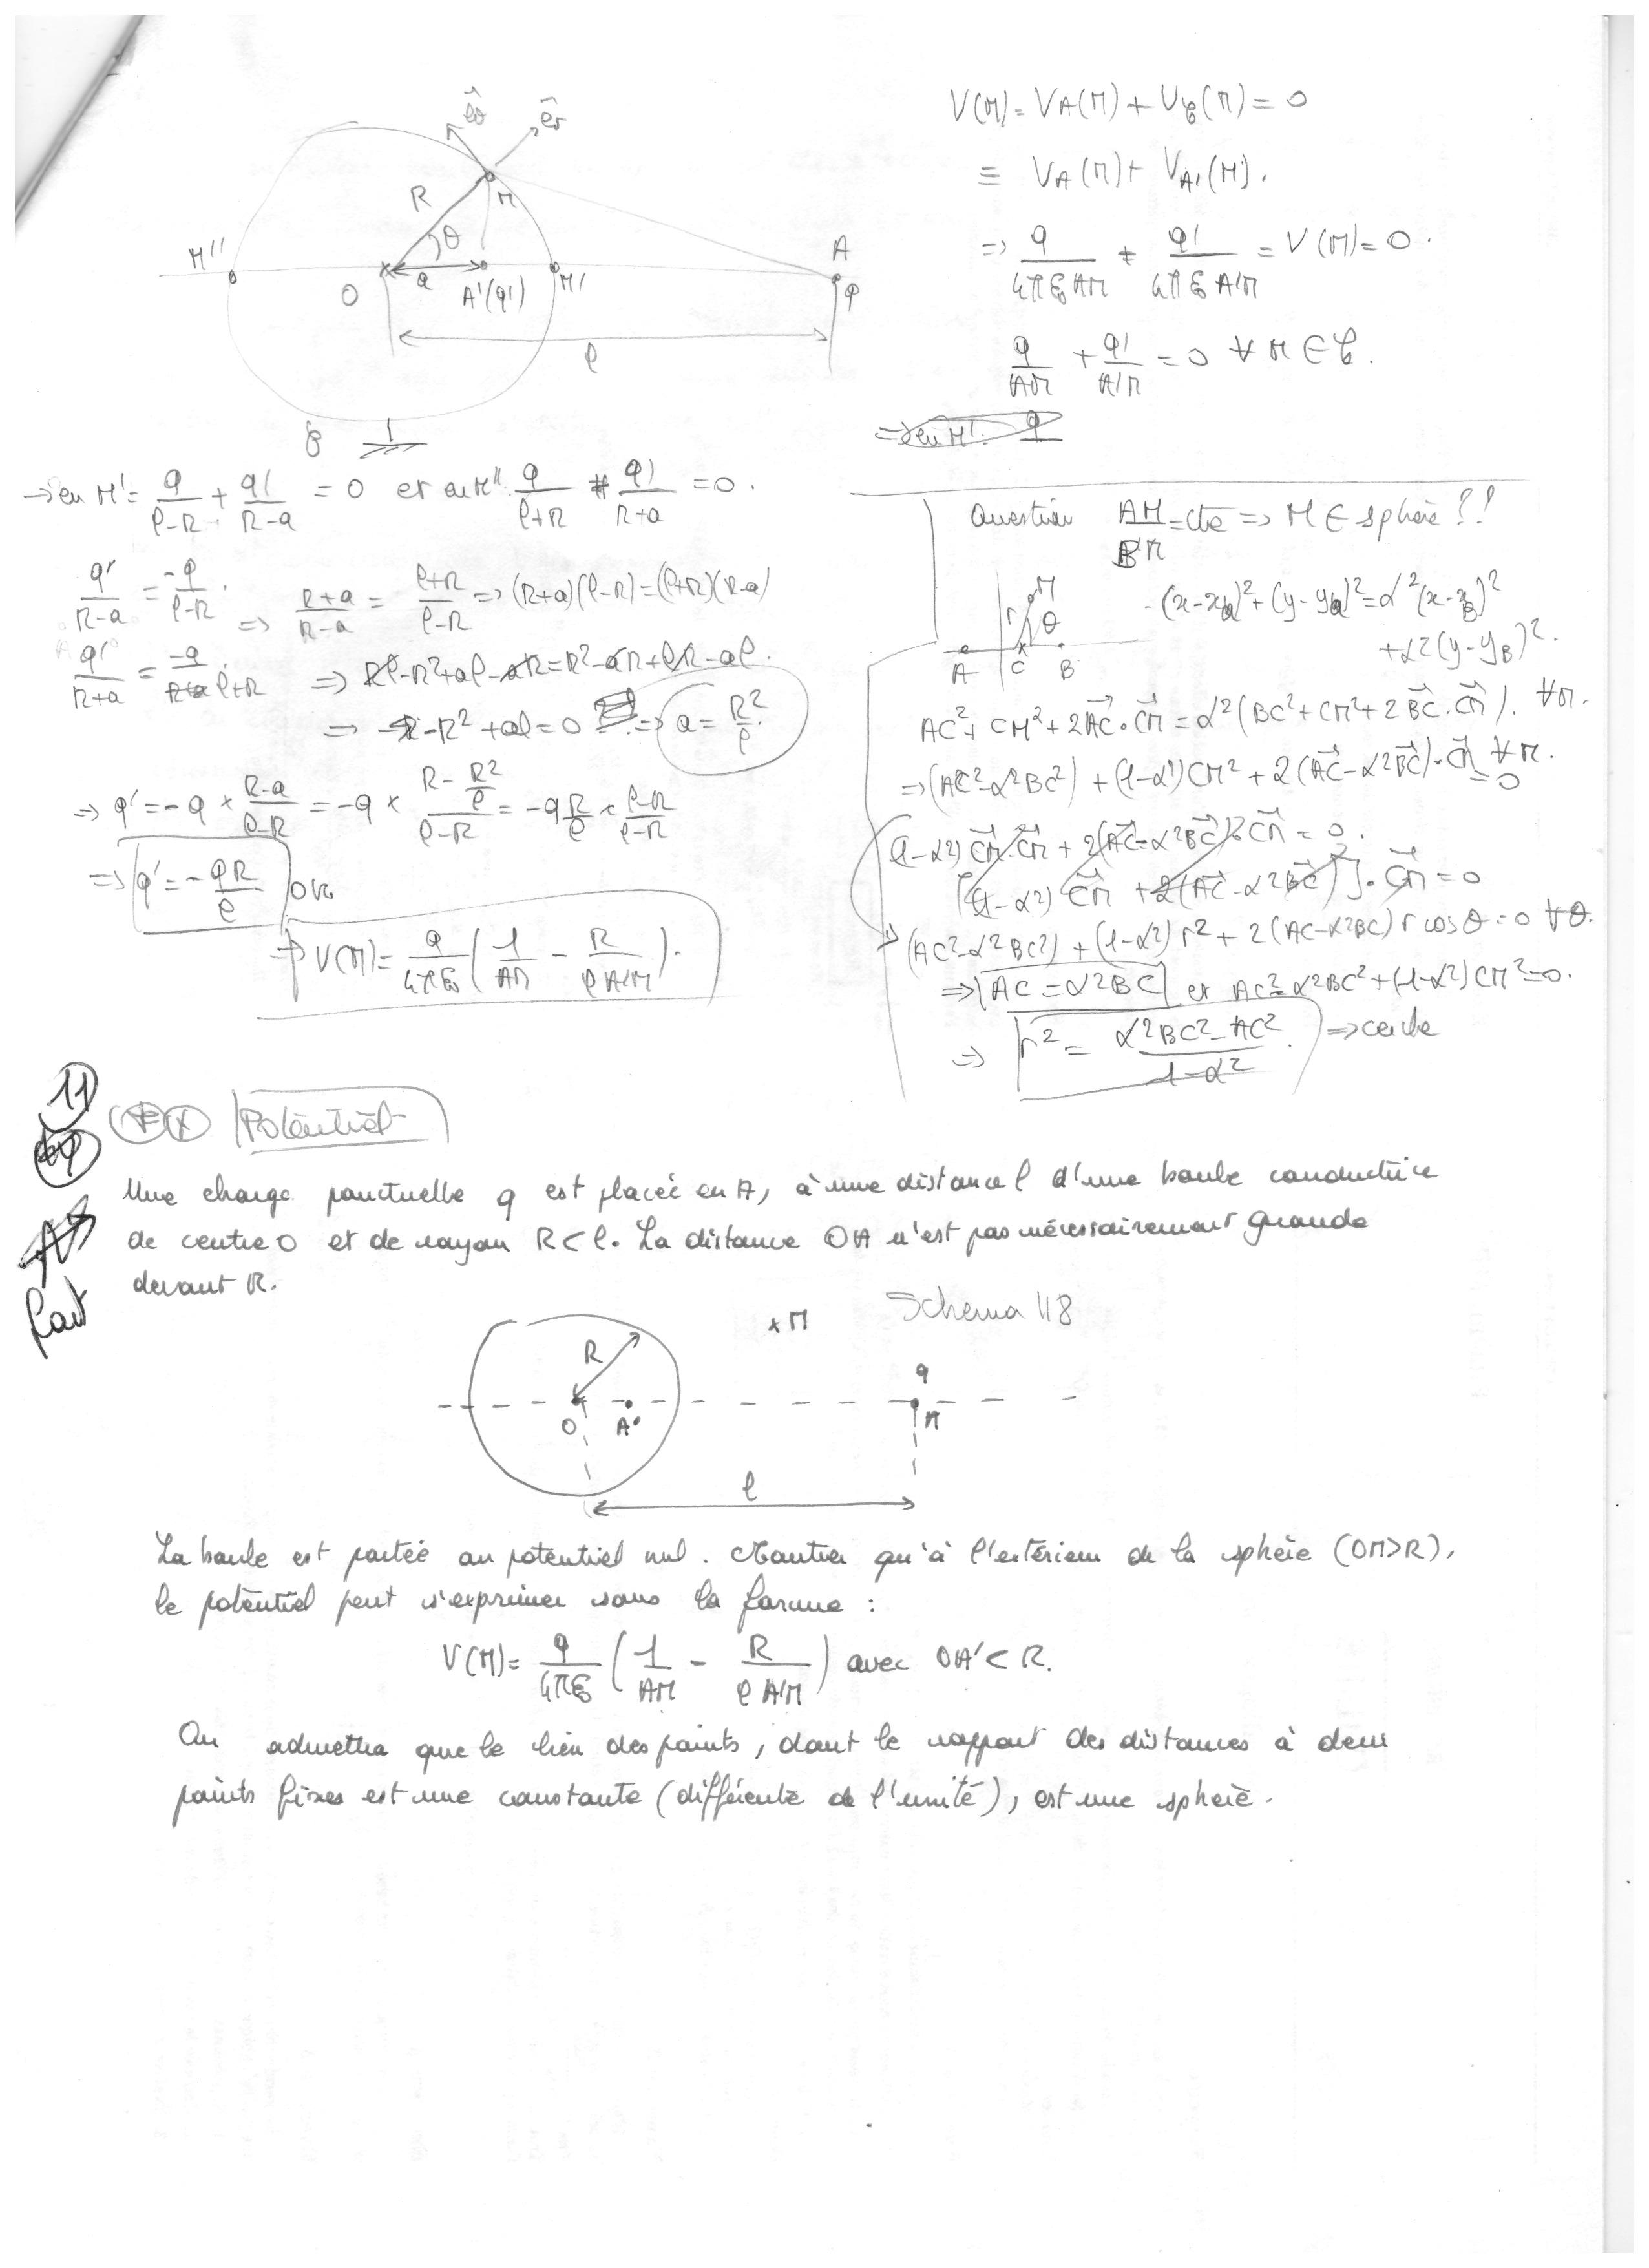 V(M) = V_A(M) + V_𝒞(M) = 0
≡ V_A(M) + V_A'(M).
⇒ q/(4πε₀ AM) + q'/(4πε₀ A'M) = V(M) = 0.
q/AM + q'/A'M = 0 ∀ M ∈ 𝒞.
eθ er
R M
θ
M'' O a A'(q') M' A
q
l
→ en M' = q/(l-R) + q'/(R-a) = 0 et en M'' q/(l+R) + q'/(R+a) = 0.
q'/(R-a) = -q/(l-R).
⇒ (R+a)/(R-a) = (l+R)/(l-R) ⇒ (R+a)(l-R) = (l+R)(R-a)
q'/(R+a) = -q/(l+R)
⇒ Rl - R² + al - aR = R² - aR + lR - al.
⇒ -R² + al = 0 ⇒ a = R²/l
⇒ q' = -q × (R-a)/(l-R) = -q × (R - R²/l)/(l-R) = -q R/l × (l-R)/(l-R)
⇒ q' = -qR/l
⇒ V(M) = q/(4πε₀) (1/AM - R/(l A'M)).
Question AM/BM = cte ⇒ M ∈ sphère ??
M
r θ
A C B
(x-xa)² + (y-ya)² = α²(x-xB)²
+ α²(y-yB)².
AC² + CM² + 2AC.CM = α²(BC² + CM² + 2BC.CM). ∀M.
⇒ (AC² - α²BC²) + (1-α²)CM² + 2(AC - α²BC).CM = 0 ∀M.
(1-α²) CM.CM + 2(AC - α²BC).CM = 0.
[(1-α²) CM + 2(AC - α²BC)].CM = 0
(AC² - α²BC²) + (1-α²) r² + 2(AC - α²BC) r cos θ = 0 ∀θ.
⇒ AC = α²BC et AC² - α²BC² + (1-α²) CM² = 0.
⇒ r² = (α²BC² - AC²)/(1-α²) ⇒ cercle
11
Potentiel
fait
Une charge ponctuelle q est placée en A, à une distance l d'une boule conductrice
de centre O et de rayon R < l. La distance OA n'est pas nécessairement grande
devant R.
Schema 118
× M
R
q
O A' A
l
La boule est portée au potentiel nul. Montrer qu'à l'extérieur de la sphère (OM>R),
le potentiel peut s'exprimer sous la forme :
V(M) = q/(4πε₀) (1/AM - R/(l A'M)) avec OA' < R.
On admettra que le lieu des points, dont le rapport des distances à deux
points fixes est une constante (différente de l'unité), est une sphère.